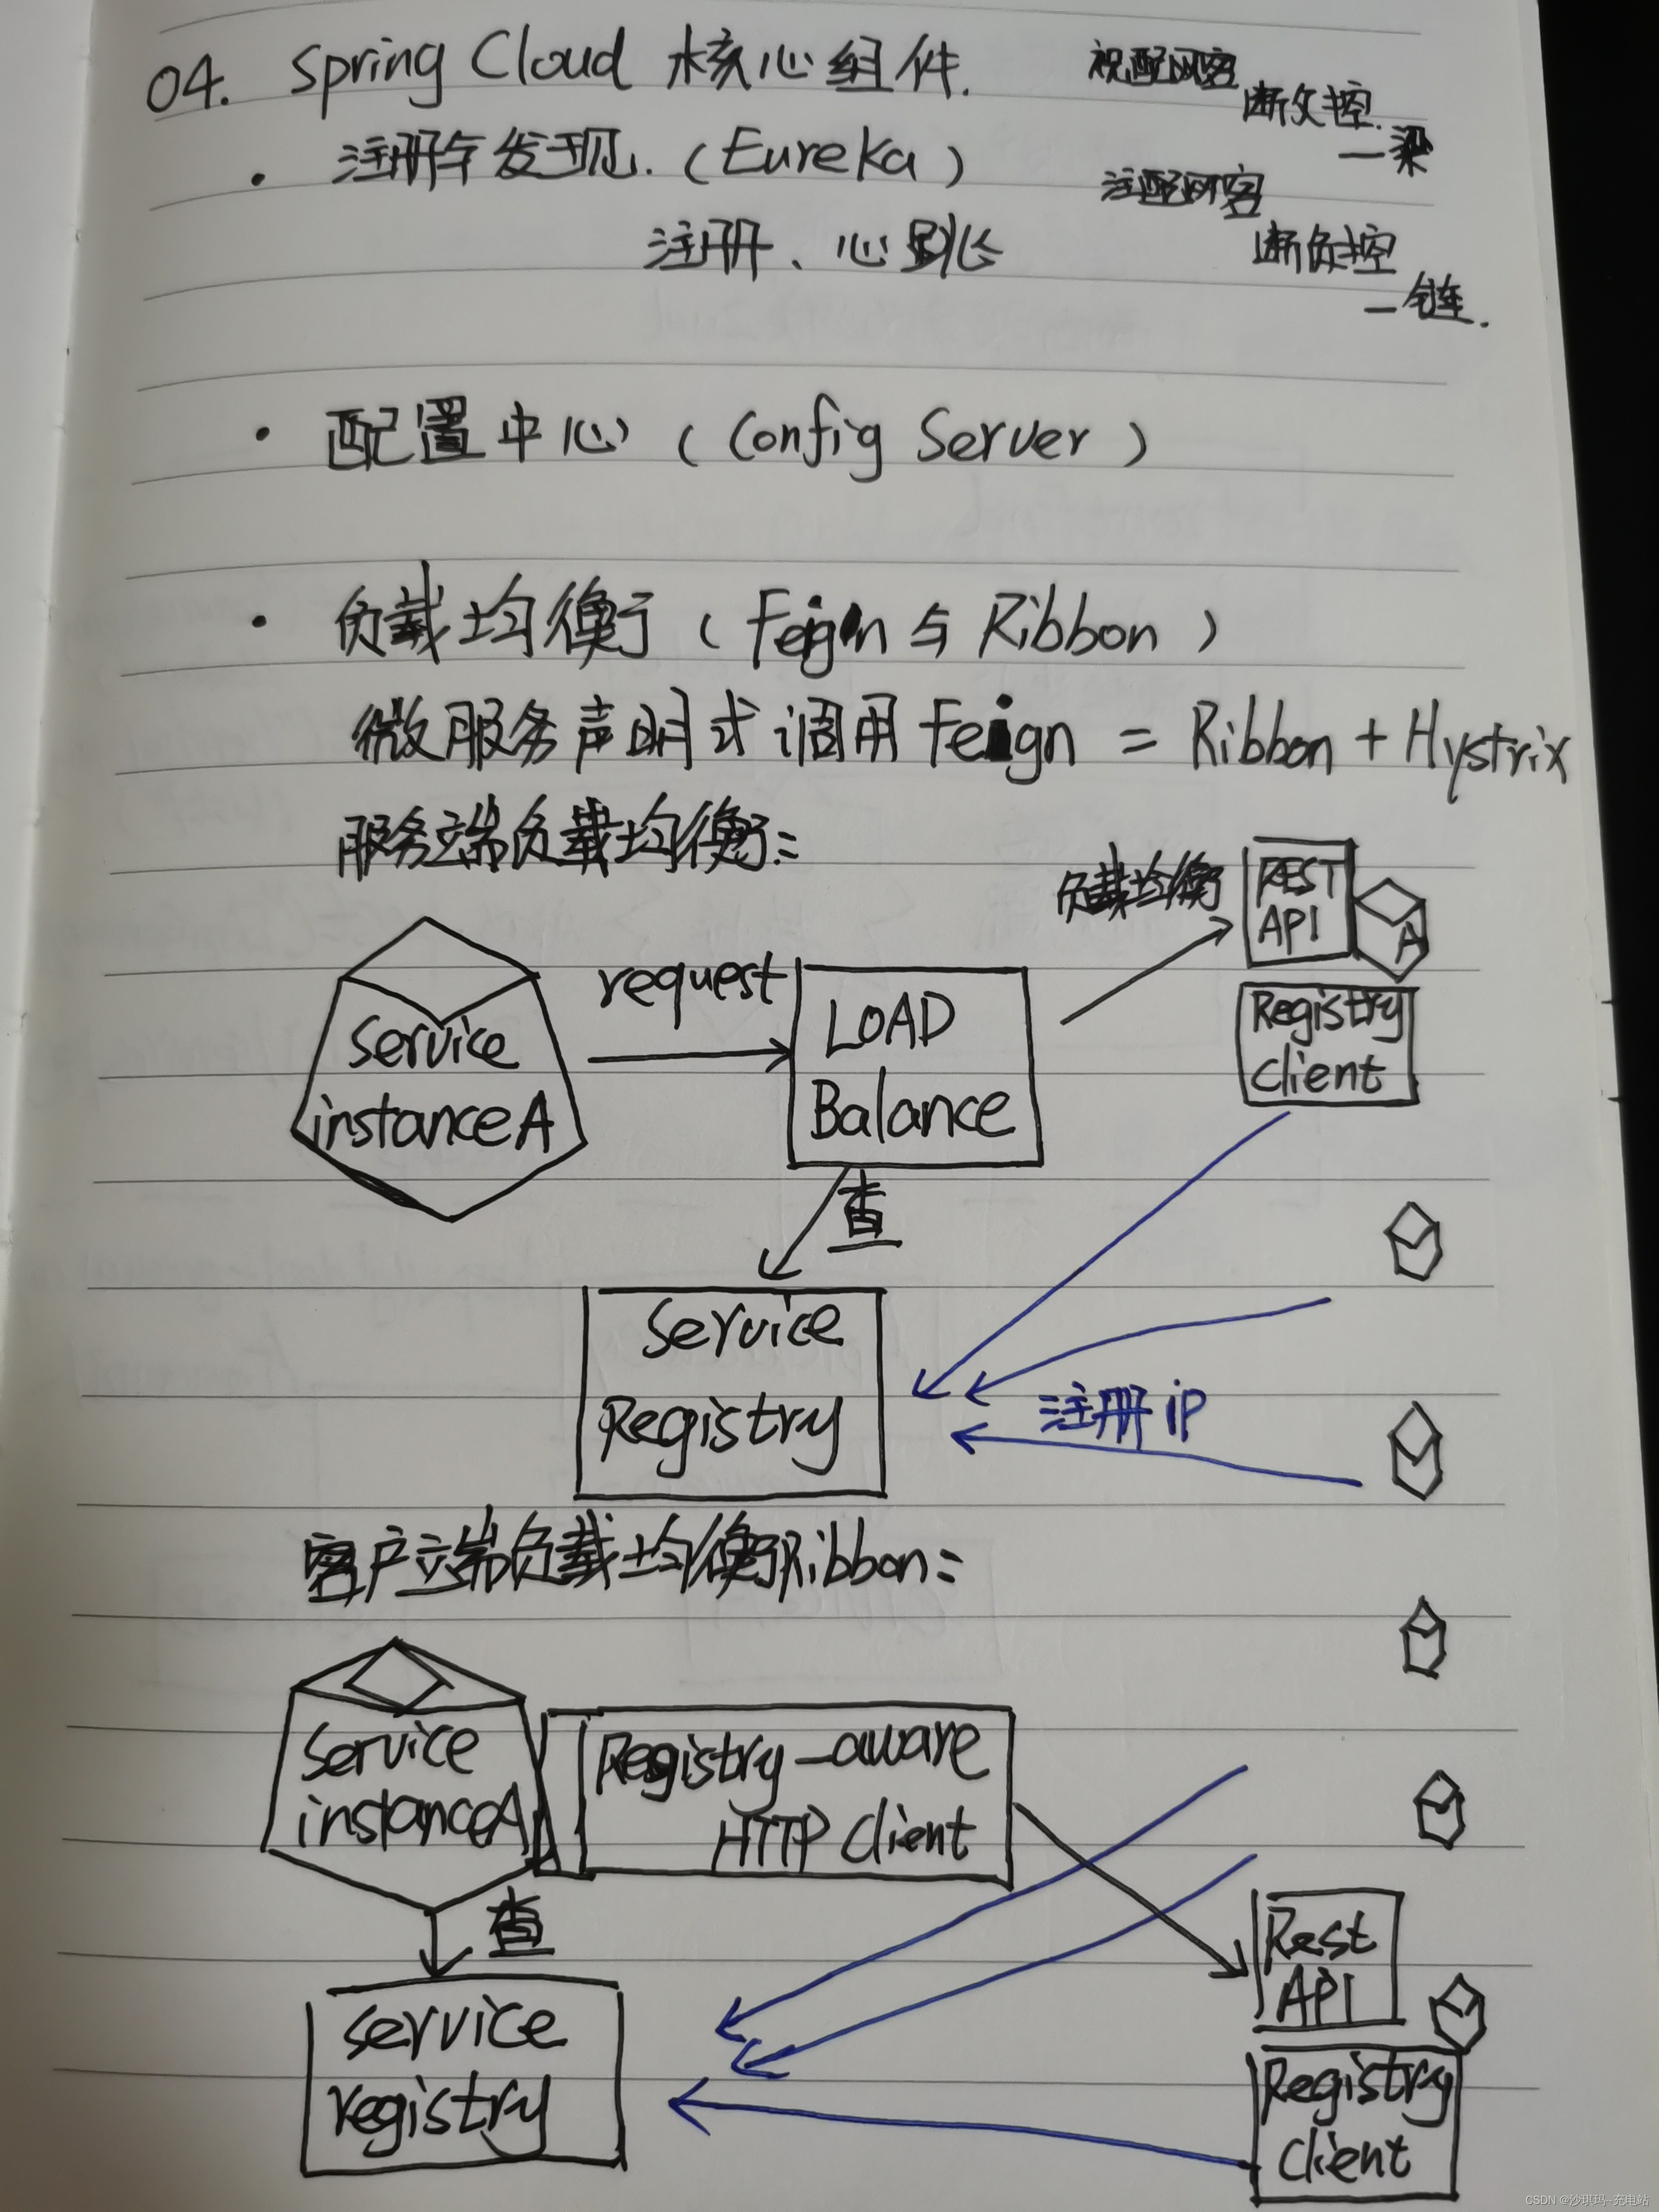 04. Spring Cloud 核心组件.
祝配网客
断父控.
一梁
· 注册与发现. (Eureka)
注配网客
注册、心跳
断负控
一链.
· 配置中心 (Config Server)
· 负载均衡 (Feign 与 Ribbon)
微服务声明式调用 Feign = Ribbon + Hystrix
服务端负载均衡:
负载均衡
REST
API
A
request
LOAD
Balance
Registry
client
service
instanceA
查
Service
Registry
注册 iP
客户端负载均衡Ribbon:
Service
instanceA
Registry-aware
HTTP Client
查
Rest
API
service
registry
Registry
client
CSDN @沙琪玛-充电站